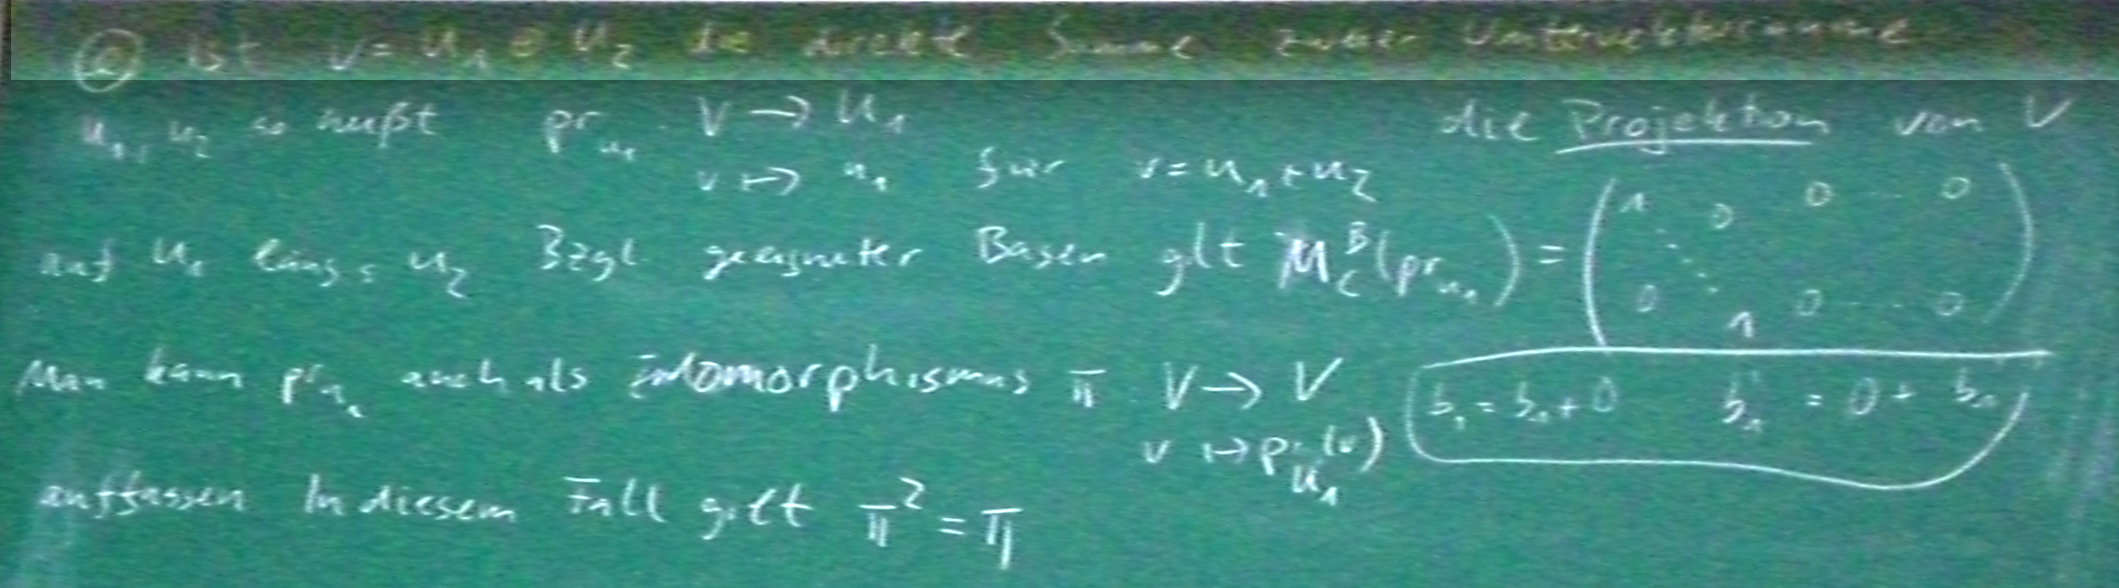 ② Ist V = U₁ ⊕ U₂ die direkte Summe zweier Untervektorräume
U₁, U₂ so heißt pr_{U₁}: V → U₁ die Projektion von V
v ↦ u₁ für v = u₁ + u₂
auf U₁ längs U₂ Bzgl. geeigneter Basen gilt M_C^B(pr_{U₁}) = ( 1 0 0 ... 0
⋱
0 1 0 ... 0 )
Man kann pr_{U₁} auch als Endomorphismus π: V → V
v ↦ pr_{U₁}(v)
b₁ = b₁ + 0 b₁' = 0 + b₁'
auffassen In diesem Fall gilt π² = π